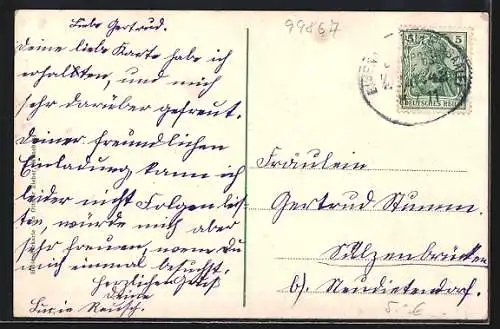 Liebe Gertrud.
Deine liebe Karte habe ich
erhalten, und mich
sehr darüber gefreut.
Deiner freundlichen
Einladung kann ich
leider nicht Folgen leis-
ten, würde mich aber
sehr freuen, wenn Du
mich einmal besuchst.
Herzlichen Gruß
Deine
Lucie Reusch.
99867
5 5
DEUTSCHES REICH
Fräulein
Gertrud Stumm.
Sülzenbrücken
b/. Neudietendorf.
5. 6